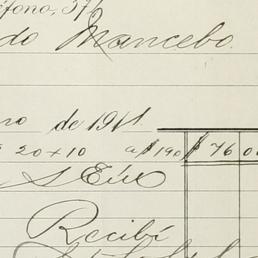 éfono, 376
do Mancebo.
ro de 1911
20 x 10 a $190 $ 76 00
Recibí